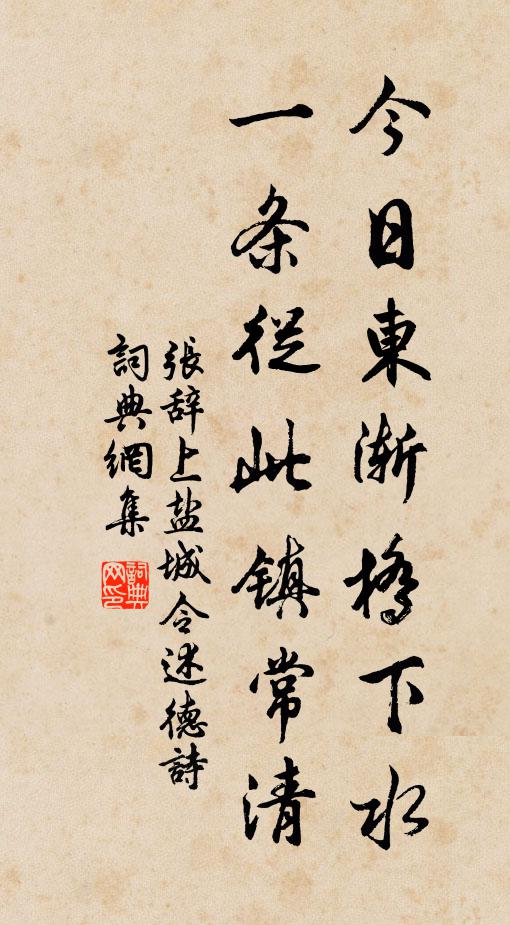 今日東漸橋下水
一条從此鎮常清
張辞上盐城令述德詩
詞典網集
詞典网印